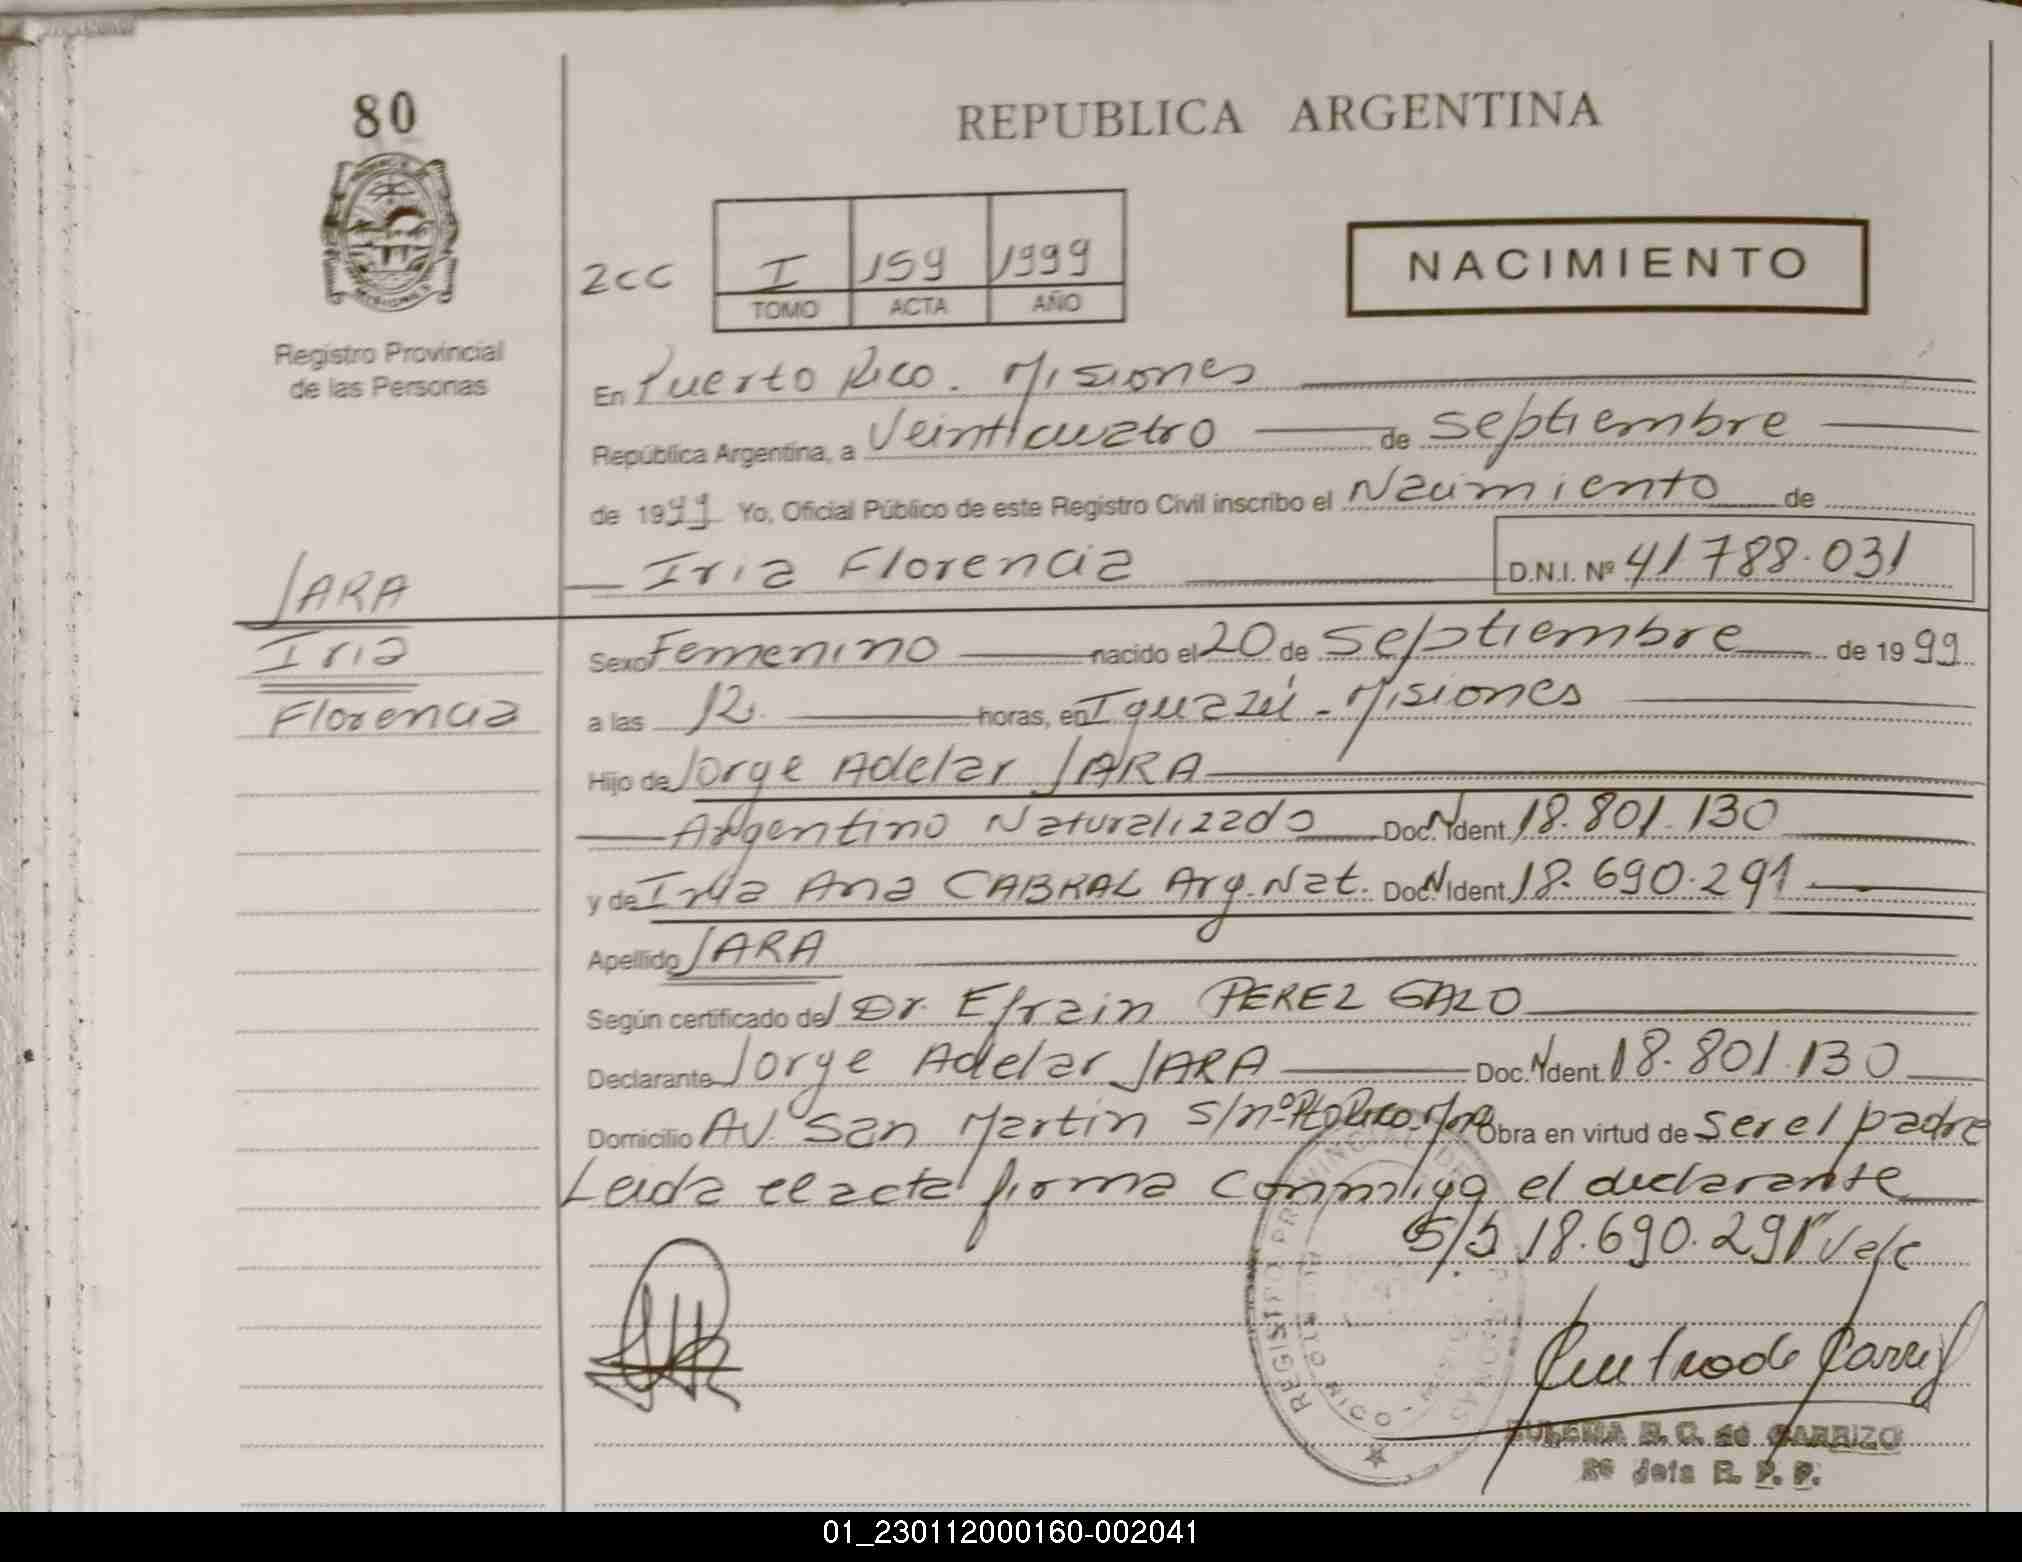 80
REPUBLICA ARGENTINA
2cc I 159 1999
TOMO ACTA AÑO
NACIMIENTO
Registro Provincial
de las Personas
En Puerto Rico. Misiones
República Argentina, a Veinticuatro de Septiembre
de 1999 Yo, Oficial Público de este Registro Civil inscribo el Nacimiento de
Iria Florencia D.N.I. Nº 41788.031
JARA
Iria
Florencia
Sexo Femenino nacido el 20 de Septiembre de 1999
a las 12. horas, en Iguazú - Misiones
Hijo de Jorge Adelar JARA
Argentino Naturalizado Doc. N Ident. 18.801.130
y de Ana CABRAL Arg. Nat. Doc. N Ident. 18.690.291
Apellido JARA
Según certificado del Dr. Efrain PEREZ GALO
Declarante Jorge Adelar JARA Doc. N Ident. 18.801.130
Domicilio AV. San Martin S/nº Pto Rico Mnes Obra en virtud de ser el padre
Leida el acta firma conmigo el declarante
S/b 18.690.291 Vale
REGISTRO PROVINCIAL DE
CARRIZO
R. P. P.
01_230112000160-002041